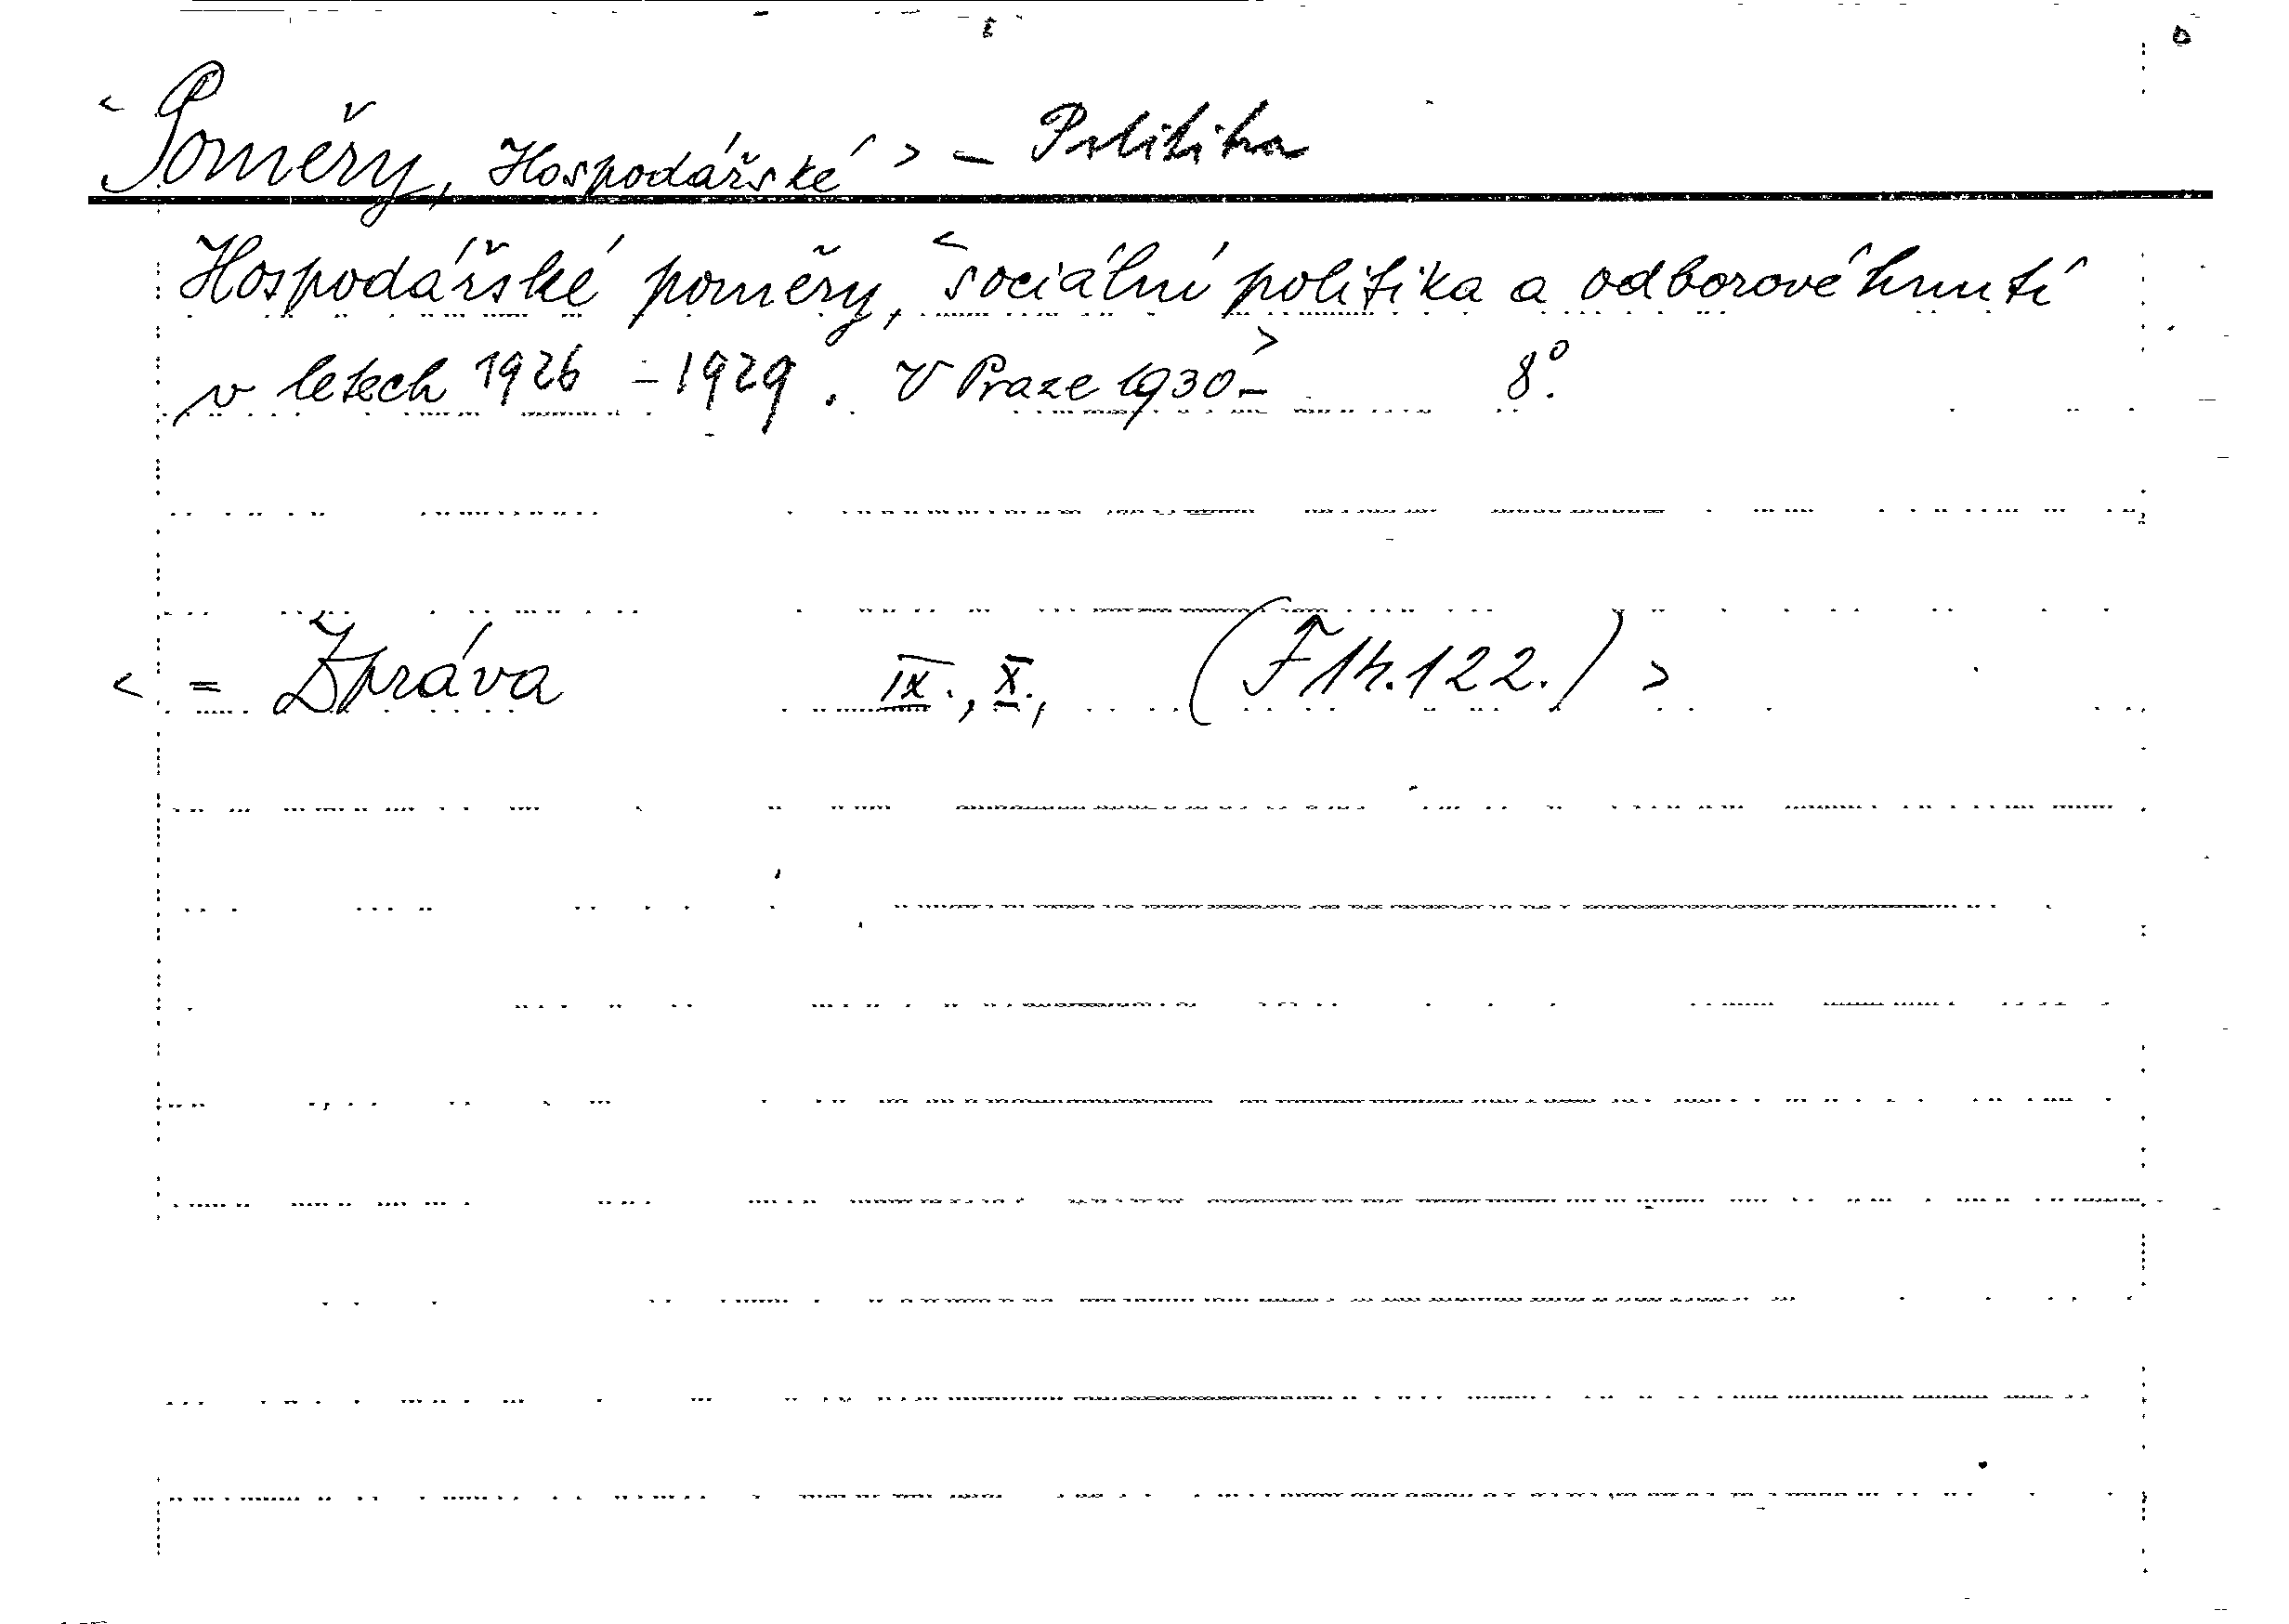 < Poměry, Hospodářské > – Politika
Hospodářské poměry, < sociální politika a odborové hnutí
v letech 1926 – 1929. V Praze 1930 > – 8°.
< = Zpráva IX., X., (F 14.122.) >